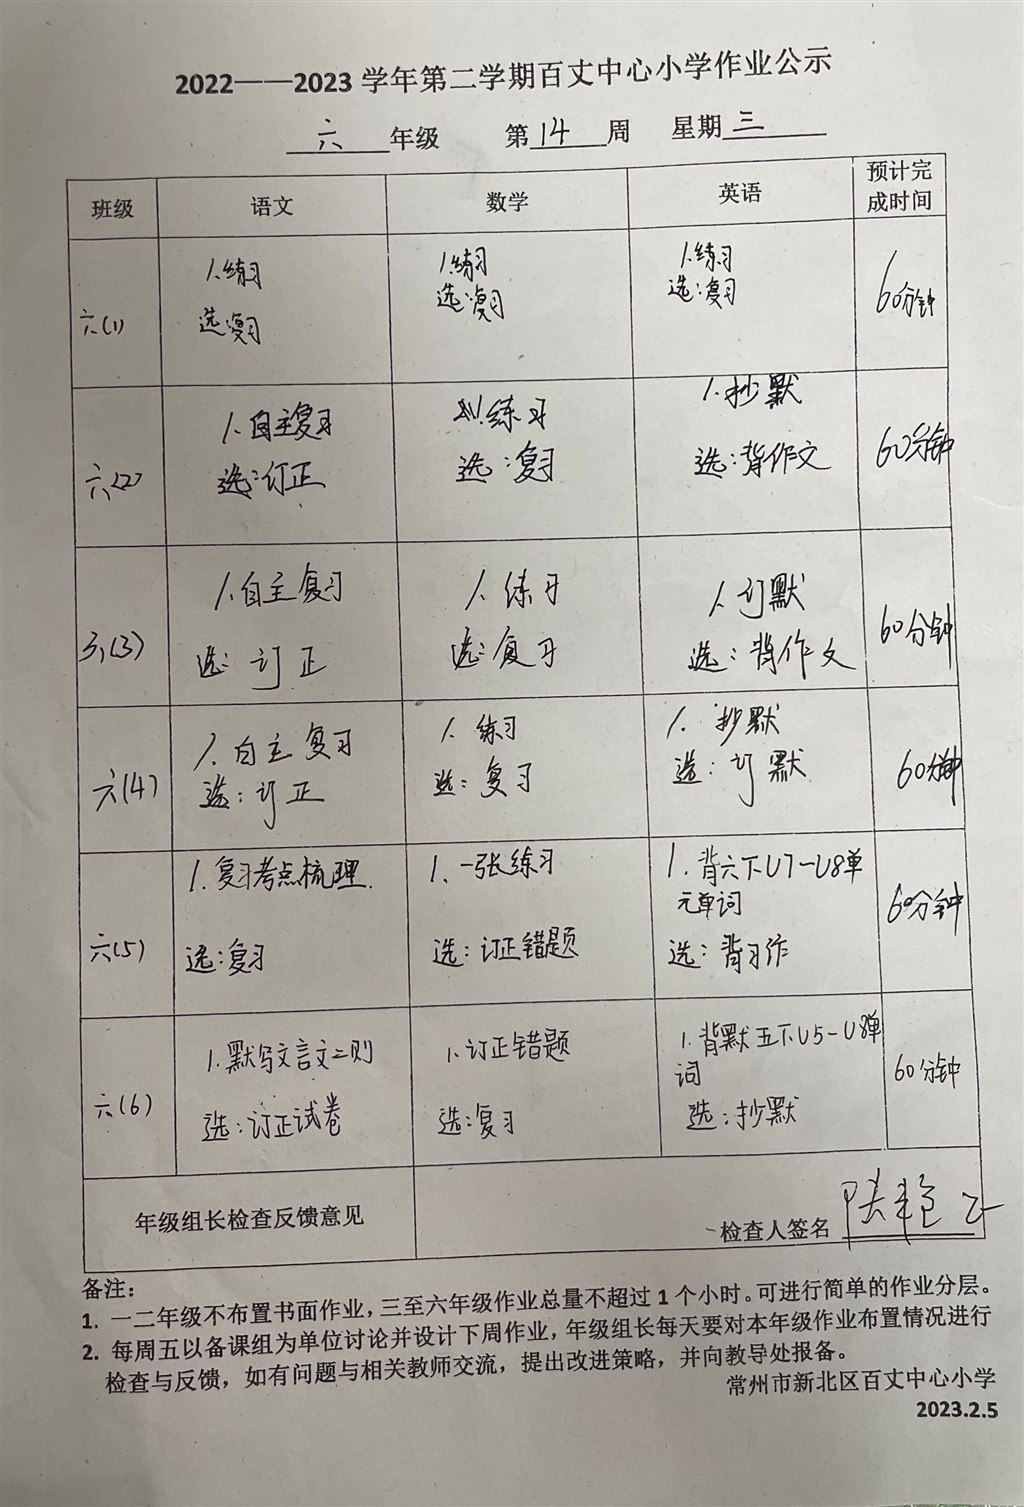 2022——2023 学年第二学期百丈中心小学作业公示
六 年级 第 14 周 星期 三
班级 语文 数学 英语 预计完成时间
六(1)
1.练习
选:复习
1.练习
选:复习
1.练习
选:复习
60分钟
六(2)
1.自主复习
选:订正
1.练习
选:复习
1.抄默
选:背作文
60分钟
(3)
1.自主复习
选:订正
1.练习
选:复习
1.订默
选:背作文
60分钟
六(4)
1.自主复习
选:订正
1.练习
选:复习
1.抄默
选:订默
60分钟
六(5)
1.复习考点梳理.
选:复习
1.一张练习
选:订正错题
1.背六下U7-U8单
元单词
选:背习作
60分钟
六(6)
1.默写文言文二则
选:订正试卷
1.订正错题
选:复习
1.背默五下U5-U8单
词
选:抄默
60分钟
年级组长检查反馈意见
检查人签名
备注:
1. 一二年级不布置书面作业,三至六年级作业总量不超过 1 个小时。可进行简单的作业分层。
2. 每周五以备课组为单位讨论并设计下周作业,年级组长每天要对本年级作业布置情况进行
检查与反馈,如有问题与相关教师交流,提出改进策略,并向教导处报备。
常州市新北区百丈中心小学
2023.2.5